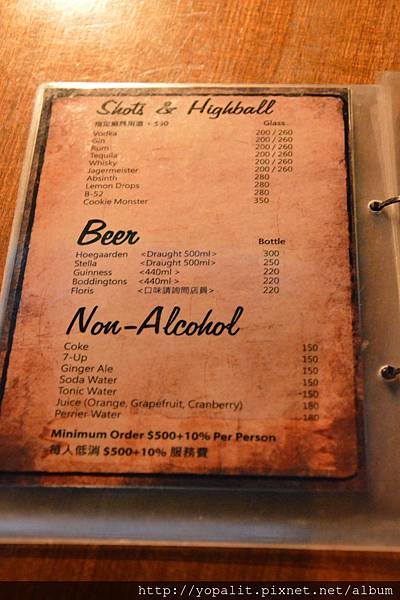 Shots & Highball
指定廠牌用酒 + $50 Glass
Vodka 200 / 260
Gin 200 / 260
Rum 200 / 260
Tequila 200 / 260
Whisky 200 / 260
Jagermeister 200 / 260
Absinth 280
Lemon Drops 280
B-52 280
Cookie Monster 350
Beer Bottle
Hoegaarden <Draught 500ml> 300
Stella <Draught 500ml> 250
Guinness <440ml > 220
Boddingtons <440ml > 220
Floris <口味請詢問店員> 220
Non-Alcohol
Coke 150
7-Up 150
Ginger Ale 150
Soda Water 150
Tonic Water 150
Juice (Orange, Grapefruit, Cranberry) 180
Perrier Water 180
Minimum Order $500+10% Per Person
每人低消 $500+10% 服務費
http://yopalit.pixnet.net/album